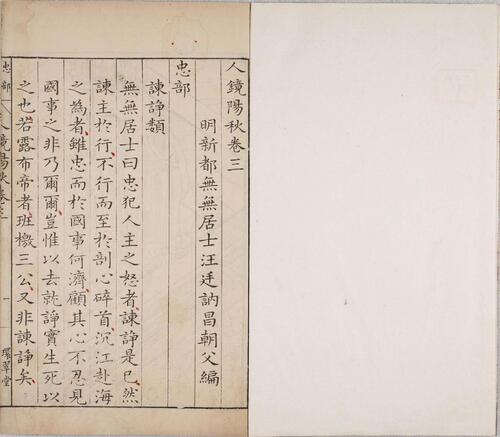 人鏡陽秋卷三
明新都無無居士汪廷訥昌朝父編
忠部
諫諍類
無無居士曰忠犯人主之怒者諫諍是已然
諫主於行不行而至於剖心碎首沉江赴海
之為者雖忠而於國事何濟顧其心不忍見
國事之非乃爾爾豈惟以去就諍實生死以
之也若露布帝者班檄三公又非諫諍矣
忠部
人鏡陽秋卷三
一
環翠堂